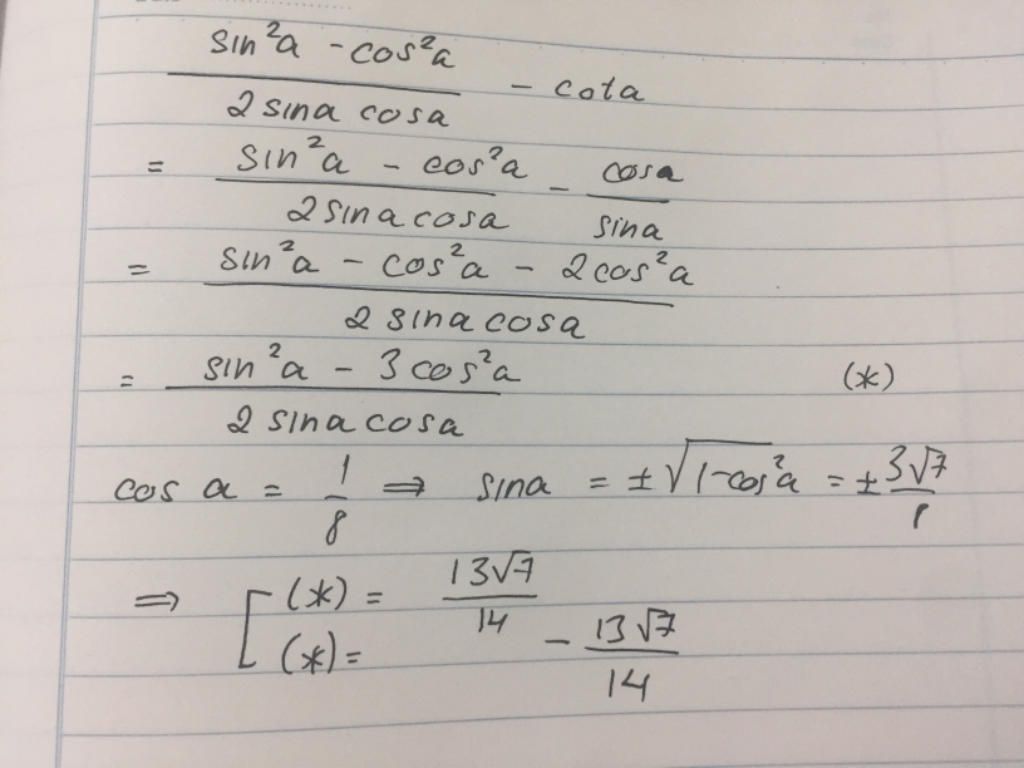 (sin²a - cos²a)/(2 sina cosa) - cota
= (sin²a - cos²a)/(2 sina cosa) - cosa/sina
= (sin²a - cos²a - 2cos²a)/(2 sina cosa)
= (sin²a - 3cos²a)/(2 sina cosa) (*)
cos a = 1/8 ⇒ sina = ±√(1-cos²a) = ± 3√7/8
⇒ [ (*) = 13√7/14
(*) = - 13√7/14